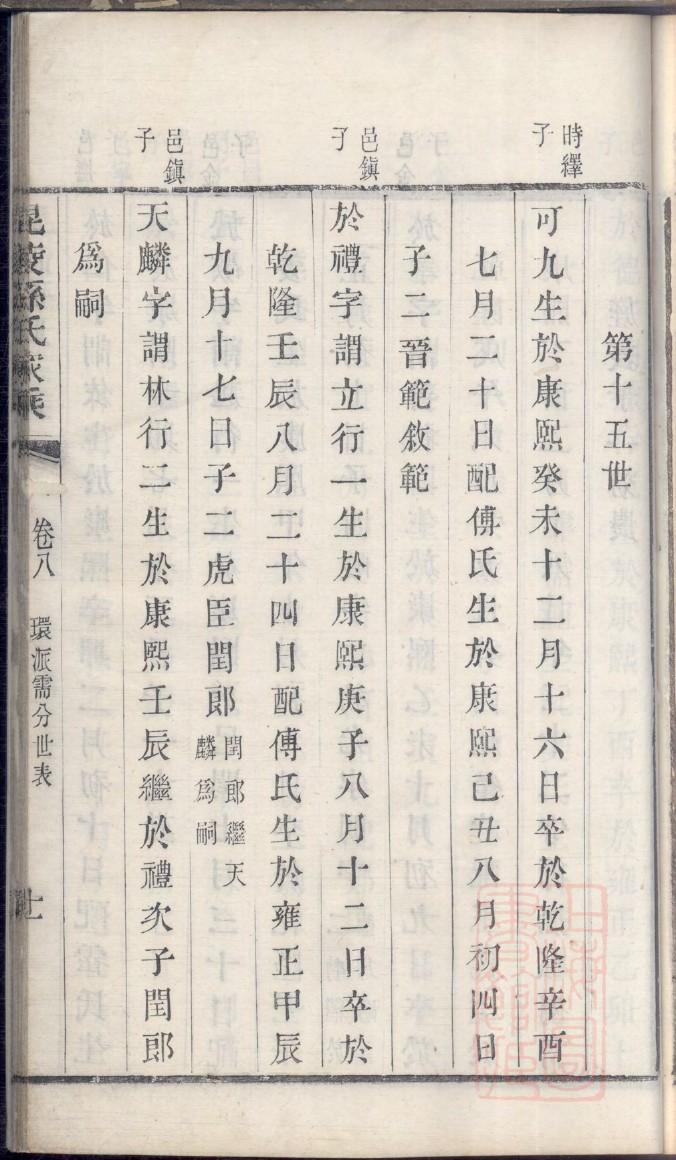 第十五世
時繹子
可九生於康熙癸未十二月十六日卒於乾隆辛酉
七月二十日配傅氏生於康熙己丑八月初四日
子二晉範敘範
邑鎭子
於禮字謂立行一生於康熙庚子八月十二日卒於
乾隆壬辰八月二十四日配傅氏生於雍正甲辰
九月十七日子二虎臣閏郎閏郎繼天麟為嗣
邑鎭子
天麟字謂林行二生於康熙壬辰繼於禮次子閏郎
為嗣
毘陵孫氏家乘
卷八
環派需分世表